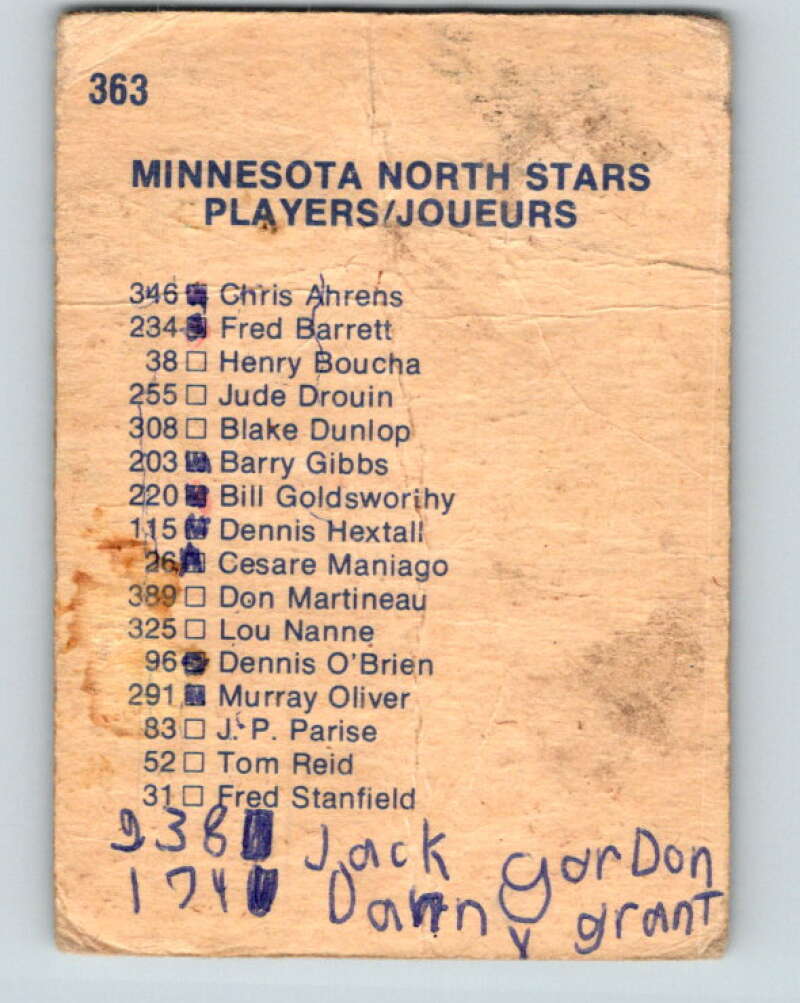 363
MINNESOTA NORTH STARS
PLAYERS/JOUEURS
346 Chris Ahrens
234 Fred Barrett
38 Henry Boucha
255 Jude Drouin
308 Blake Dunlop
203 Barry Gibbs
220 Bill Goldsworthy
115 Dennis Hextall
26 Cesare Maniago
389 Don Martineau
325 Lou Nanne
96 Dennis O'Brien
291 Murray Oliver
83 J. P. Parise
52 Tom Reid
31 Fred Stanfield
238 Jack GorDon
174 Danny grant